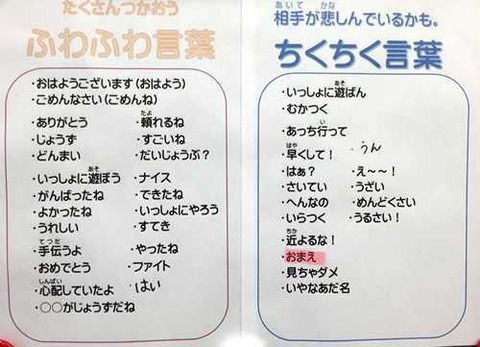 たくさんつかおう
ふわふわ言葉
・おはようございます(おはよう)
・ごめんなさい(ごめんね)
・ありがとう ・頼れるね
・じょうず ・すごいね
・どんまい ・だいじょうぶ?
・いっしょに遊ぼう ・ナイス
・がんばったね ・できたね
・よかったね ・いっしょにやろう
・うれしい ・すてき
・手伝うよ ・やったね
・おめでとう ・ファイト
・心配していたよ ・はい
・○○がじょうずだね
相手が悲しんでいるかも。
ちくちく言葉
・いっしょに遊ばん
・むかつく
・あっち行って
・早くして! ・うん
・はぁ? ・え~~!
・さいてい ・うざい
・へんなの ・めんどくさい
・いらつく ・うるさい!
・近よるな!
・おまえ
・見ちゃダメ
・いやなあだ名